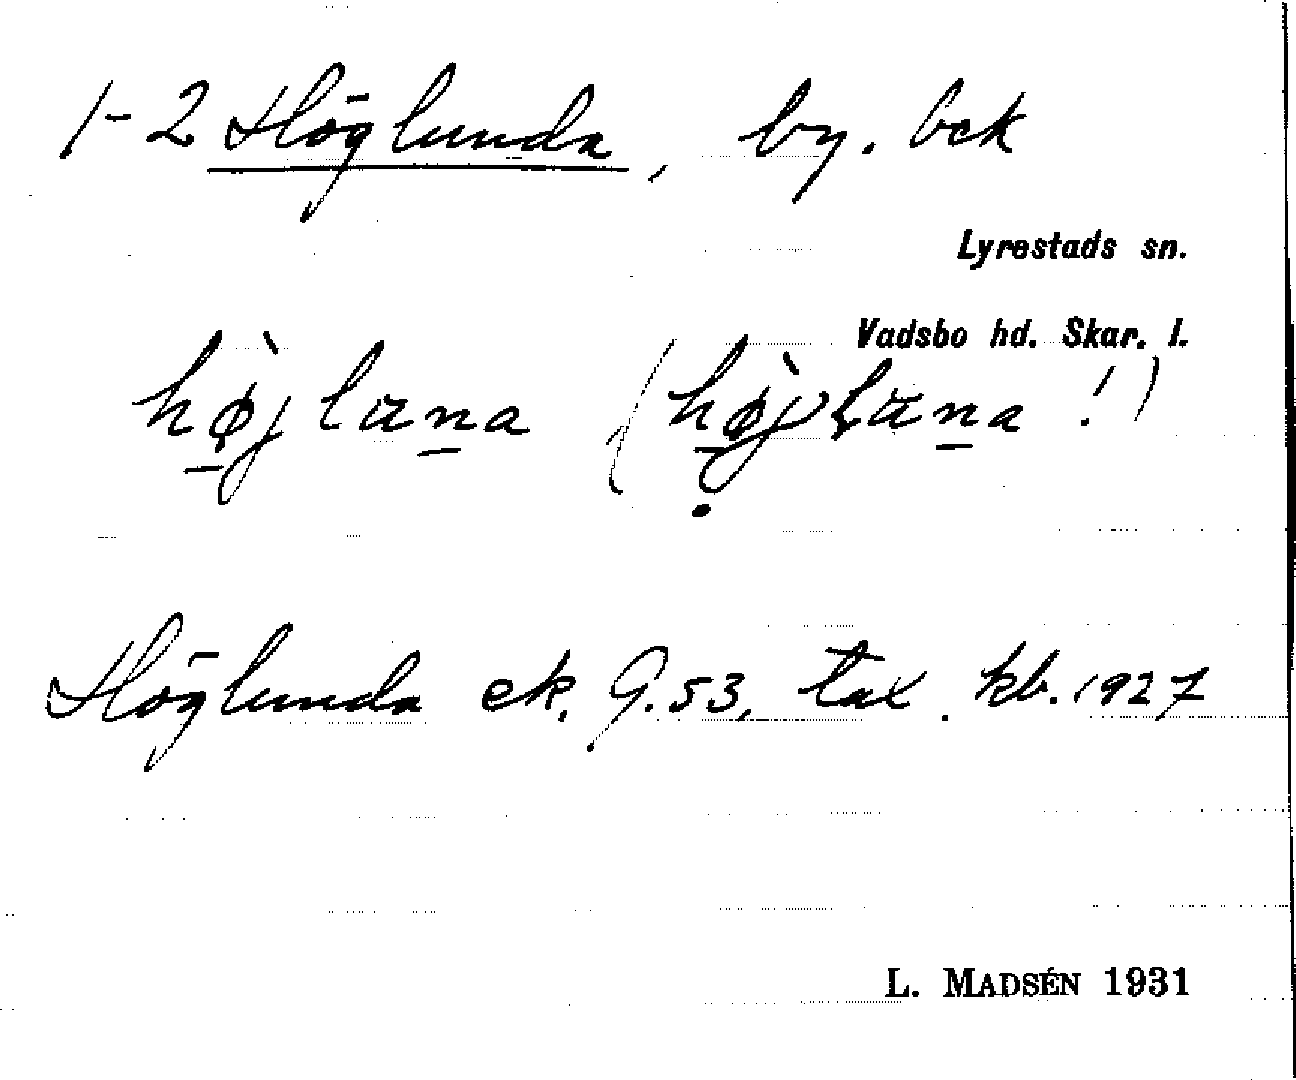 1-2 Höglunda, by. bek
Lyrestads sn.
Vadsbo hd. Skar. l.
hø̠̀jlun̠a (hø̠̀jlun̠a!)
Höglunda ek. G.53, tax. kb. 1927
L. MADSÉN 1931